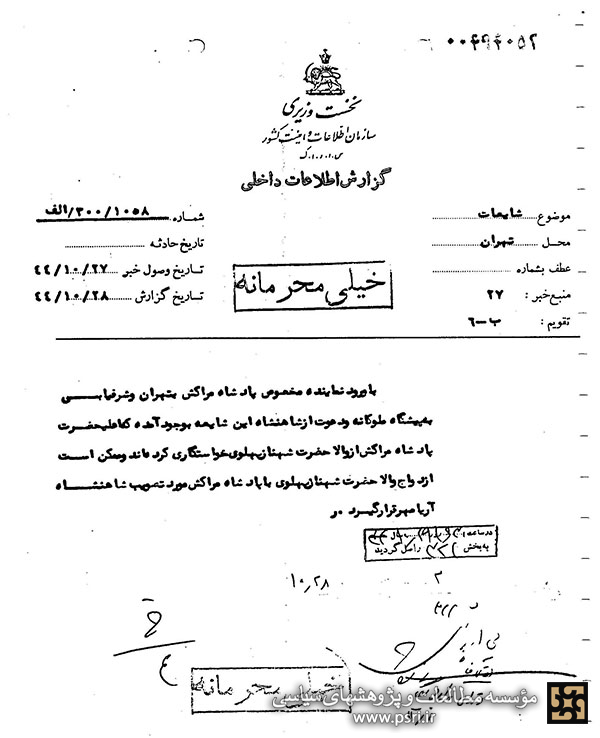 ۰۰۴۹۴۰۵۲
نخست وزیری
سازمان اطلاعات و امنیت کشور
س.ا.و.ا.ک
گزارش اطلاعات داخلی
موضوع شایعات
محل تهران
عطف بشماره
منبع خبر : ۲۷
تقویم : ب-۶
شماره ۳۰۰/۱۰۵۸/الف
تاریخ حادثه
تاریخ وصول خبر ۴۴/۱۰/۲۷
تاریخ گزارش ۴۴/۱۰/۲۸
خیلی محرمانه
با ورود نماینده مخصوص پادشاه مراکش بتهران و شرفیابی
به پیشگاه ملوکانه و دعوت از شاهنشاه این شایعه بوجود آمده که اعلیحضرت
پادشاه مراکش از والا حضرت شهناز پهلوی خواستگاری کرده اند و ممکن است
ازدواج والا حضرت شهناز پهلوی با پادشاه مراکش مورد تصویب شاهنشاه
آریامهر قرار گیرد
در ساعت
به بخش ۳۲۱ واصل گردید
۱۰٫۲۸
۲
خیلی محرمانه
مؤسسه مطالعات و پژوهشهای سیاسی
www.psri.ir